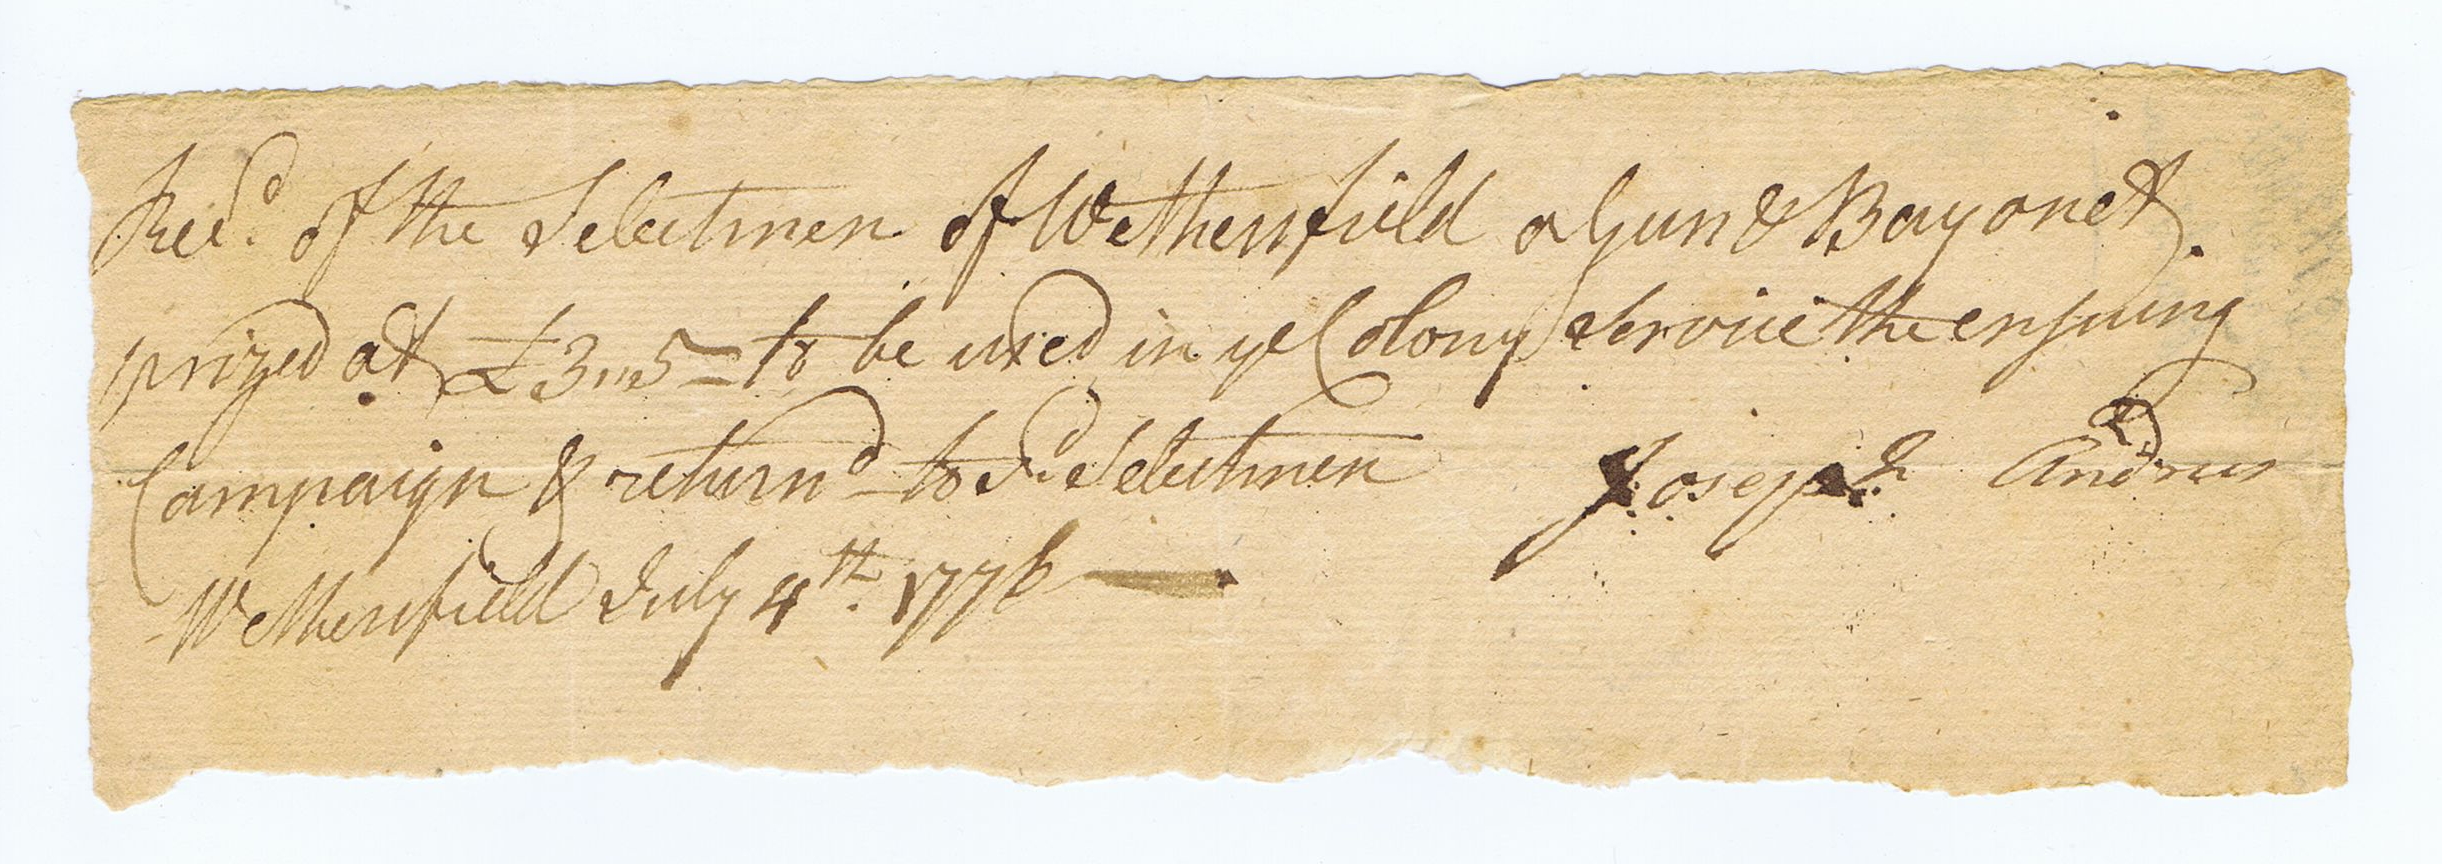 Rec.d of the Selectmen of Wethersfield a Gun & Bayonet
prized at £3,,,5= to be used in ye Colony Service the ensuing
Campaign & returnd to sd Selectmen Joseph Andrus
Wethersfield July 4th. 1776